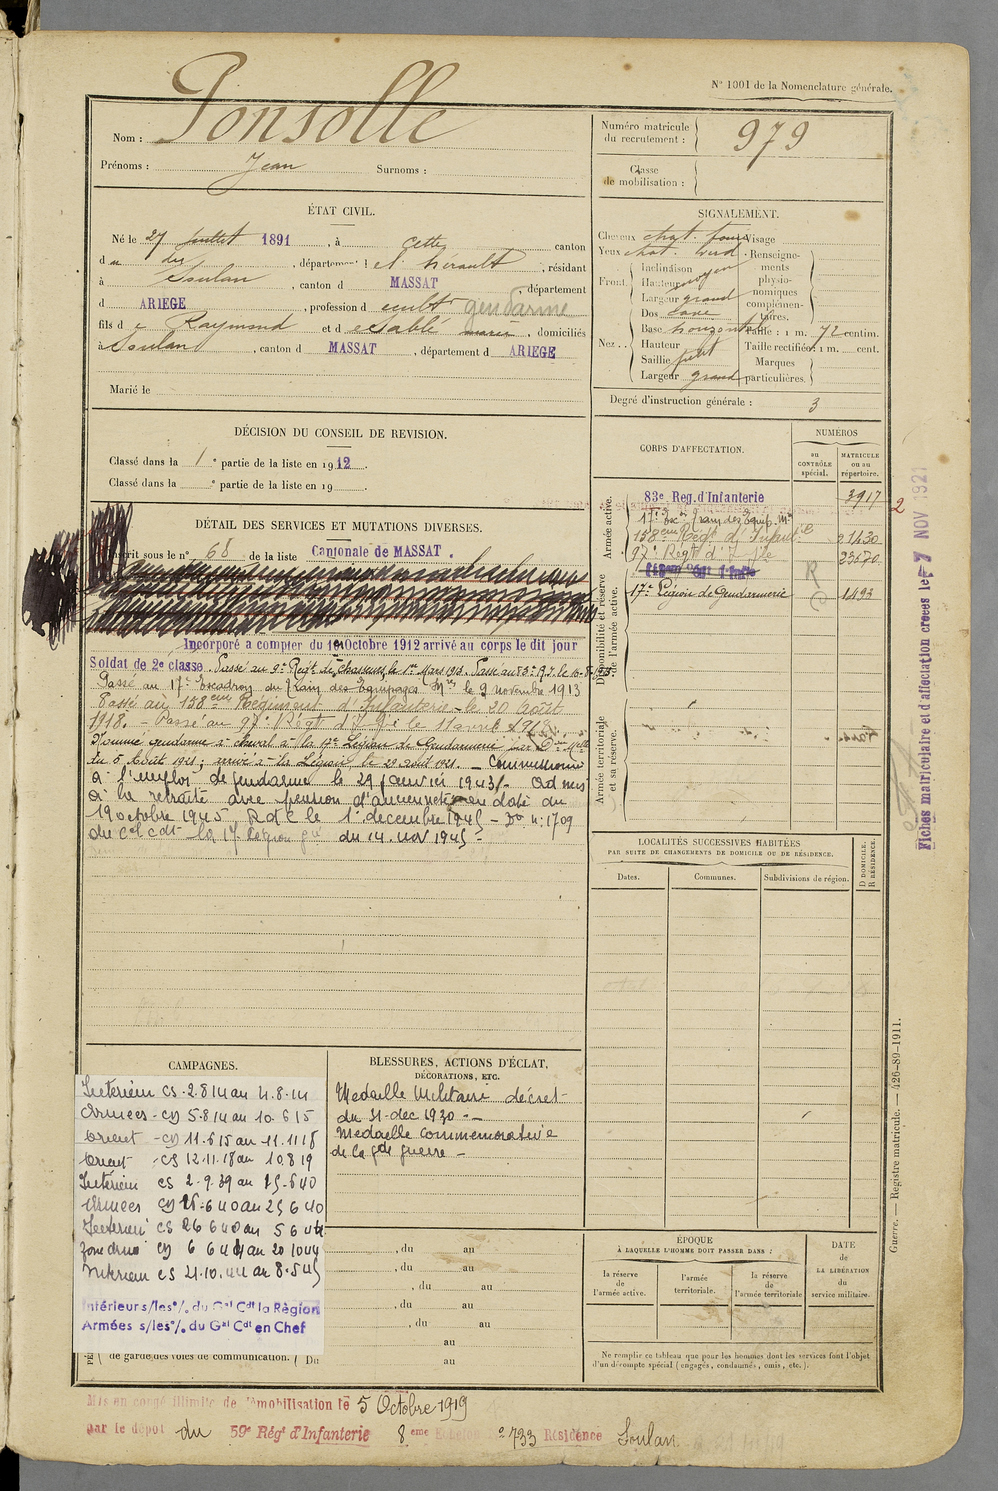 N° 1001 de la Nomenclature générale.
Nom : Ponsolle
Prénoms : Jean Surnoms :
Numéro matricule du recrutement : 979
Classe de mobilisation :
ÉTAT CIVIL.
Né le 27 juillet 1891, à Cette, canton
d u dit, département d l'Hérault, résidant
à Soulan, canton d MASSAT, département
d ARIEGE, profession d cultr gendarme
fils d e Raymond et d Establé, domiciliés
à Soulan, canton d MASSAT, département d ARIEGE
Marié le
SIGNALEMENT.
Cheveux chat. foncé Visage
Yeux chat. verd.
Front. Inclinaison moyen
Hauteur
Largeur grand
Nez. Dos cave
Base horizontale
Hauteur
Saillie petit
Largeur grand
Renseignements physionomiques complémentaires.
Taille : 1 m. 72 centim.
Taille rectifiée : 1 m. cent.
Marques particulières.
Degré d'instruction générale : 3
DÉCISION DU CONSEIL DE REVISION.
Classé dans la 1e partie de la liste en 1912.
Classé dans la e partie de la liste en 19 .
CORPS D'AFFECTATION.
NUMÉROS
au CONTRÔLE spécial.
MATRICULE ou au répertoire.
Armée active.
83e Reg. d'Infanterie 3917
17e Esc. Train des Equip. Mres
158eme Régt d'Infantie 21430
97e Regt d'Infie 23670
17e Légion de Gendarmerie 1493
Disponibilité et réserve de l'armée active.
Armée territoriale et sa réserve.
DÉTAIL DES SERVICES ET MUTATIONS DIVERSES.
Inscrit sous le n° 68 de la liste Cantonale de MASSAT.
Incorporé a compter du 10 Octobre 1912 arrivé au corps le dit jour
Soldat de 2e classe. Passé au 9e Regt de Chasseurs le 1er Mars 1913.
Passé au 17e Escadron du train des Equipages Mres le 9 novembre 1913
Passé au 158eme Régiment d'Infanterie le 20 Août
1918. - Passé au 97e Régt d'Ie le 11 avril 1919
Nommé gendarme à cheval à la 17e Légion de Gendarmerie par Don Melle
du 5 Août 1921 ; arrivé à la Légion le 29 août 1921. - Commissionné
à l'emploi de gendarme le 29 janvier 1943 /- Admis
à la retraite avec pension d'ancienneté en date du
19 octobre 1945 R d C le 1er decembre 1945 - Don n: 1709
du Cel Cdt la 17 Légion gie du 14. nov 1945 -
LOCALITÉS SUCCESSIVES HABITÉES
PAR SUITE DE CHANGEMENTS DE DOMICILE OU DE RÉSIDENCE.
Dates. Communes. Subdivisions de région.
D DOMICILE. R RÉSIDENCE.
CAMPAGNES.
Interieur CS - 2.8.14 au 4.8.14
Armées - CD 5.8.14 au 10.6.15
Orient - CD 11.6.15 au 11.11.18
Orient - CS 12.11.18 au 10.8.19
Interieur CS 2.9.39 au
Armées CD au 25 6 40
Interieur CS 26 6 40 au 5 6 44
CD 6 6 44 au 20 10 44
Interieur CS 21.10.44 au 8.5.45
Intérieur s/les °/. du Gal Cdt la Région
Armées s/les °/. du Gal Cdt en Chef
BLESSURES, ACTIONS D'ÉCLAT, DÉCORATIONS, ETC.
Medaille Militaire décret
du 31 dec 1930 --
Medaille commemorative
de la gde guerre -
, du au
, du au
, du au
, du au
, du au
au
de garde des voies de communication. Du au
ÉPOQUE
À LAQUELLE L'HOMME DOIT PASSER DANS :
la réserve de l'armée active.
l'armée territoriale.
la réserve de l'armée territoriale
DATE de LA LIBÉRATION du service militaire.
Ne remplir ce tableau que pour les hommes dont les services font l'objet
d'un décompte spécial (engagés, condamnés, omis, etc.).
Mis en congé illimité de démobilisation le 5 Octobre 1919
par le dépôt du 59e Régt d'Infanterie 8eme Echelon 2733 Résidence Soulan
Fiches matriculaire et d'affectation créées le 7 NOV 1921
Guerre. — Registre matricule. — 426-89-1911.